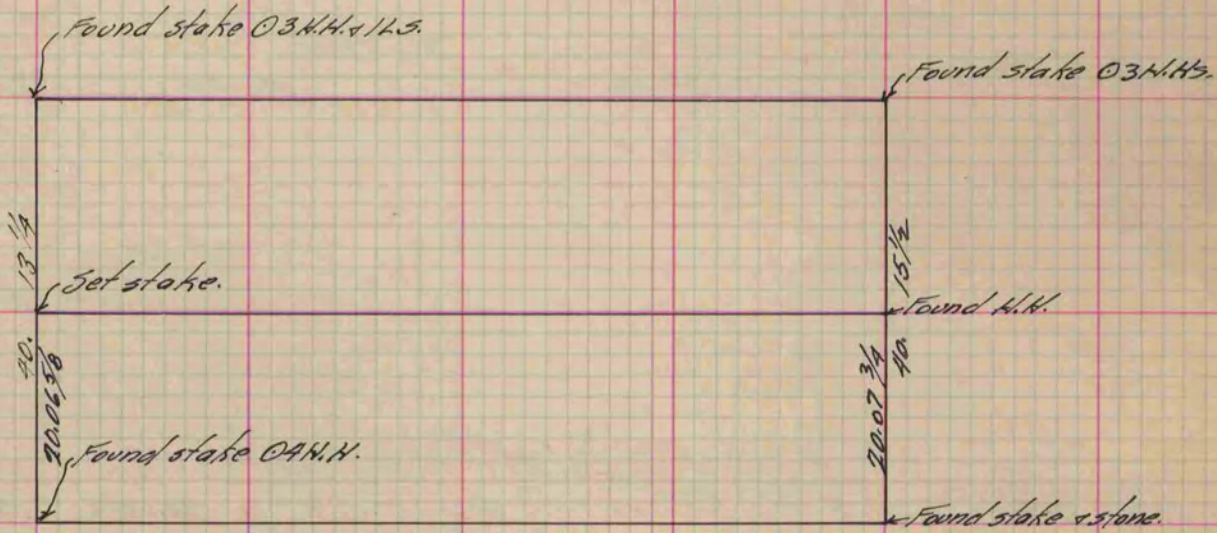 Found stake ⊙3H.H.&1L.S.
Found stake ⊙3H.Hs.
40. 13 1/4
40. 15 1/2
Set stake.
Found H.H.
20.06 5/8
20.07 3/4
Found stake ⊙4H.H.
Found stake & stone.